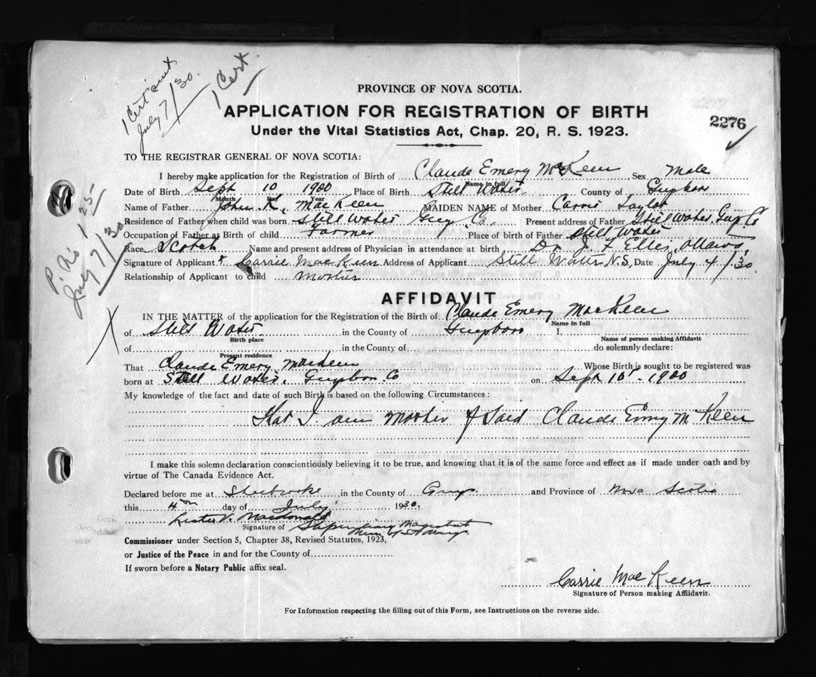 1 Cert sent
July 7/30.
1 Cert.
PROVINCE OF NOVA SCOTIA.
APPLICATION FOR REGISTRATION OF BIRTH
2276
Under the Vital Statistics Act, Chap. 20, R. S. 1923.
TO THE REGISTRAR GENERAL OF NOVA SCOTIA:
I hereby make application for the Registration of Birth of Claude Emery McKeen Sex Male
Name in full
Date of Birth Sept 10 1900 Place of Birth Still Water County of Guysboro
Month Day Year
Name of Father John K. MacKeen MAIDEN NAME of Mother Carrie Taylor
Residence of Father when child was born Still Water Guy Co. Present address of Father Still Water Guy Co
Occupation of Father at Birth of child Farmer Place of birth of Father Still Water
Race Scotch Name and present address of Physician in attendance at birth Dr. Ellis, Ottawa
Signature of Applicant Carrie MacKeen Address of Applicant Still Water N.S. Date July 4/30
Relationship of Applicant to child mother
P. No 1.25
July 7/30
AFFIDAVIT
IN THE MATTER of the application for the Registration of the Birth of Claude Emery MacKeen
Name in full
of Still Water in the County of Guysboro I,
Birth place Name of person making Affidavit
of in the County of do solemnly declare:
Present residence
That Claude Emery MacKeen Whose Birth is sought to be registered was
born at Still Water, Guysboro Co on Sept 10th - 1900
My knowledge of the fact and date of such Birth is based on the following Circumstances:
That I am mother of said Claude Emery McKeen
I make this solemn declaration conscientiously believing it to be true, and knowing that it is of the same force and effect as if made under oath and by
virtue of The Canada Evidence Act.
Declared before me at Sherbrooke in the County of Guys and Province of Nova Scotia
this 4th day of July 1930.
Lester V. Macdonald
Signature of Stipendiary Magistrate
Commissioner under Section 5, Chapter 38, Revised Statutes, 1923,
or Justice of the Peace in and for the County of
If sworn before a Notary Public affix seal.
Carrie MacKeen
Signature of Person making Affidavit.
For Information respecting the filling out of this Form, see Instructions on the reverse side.